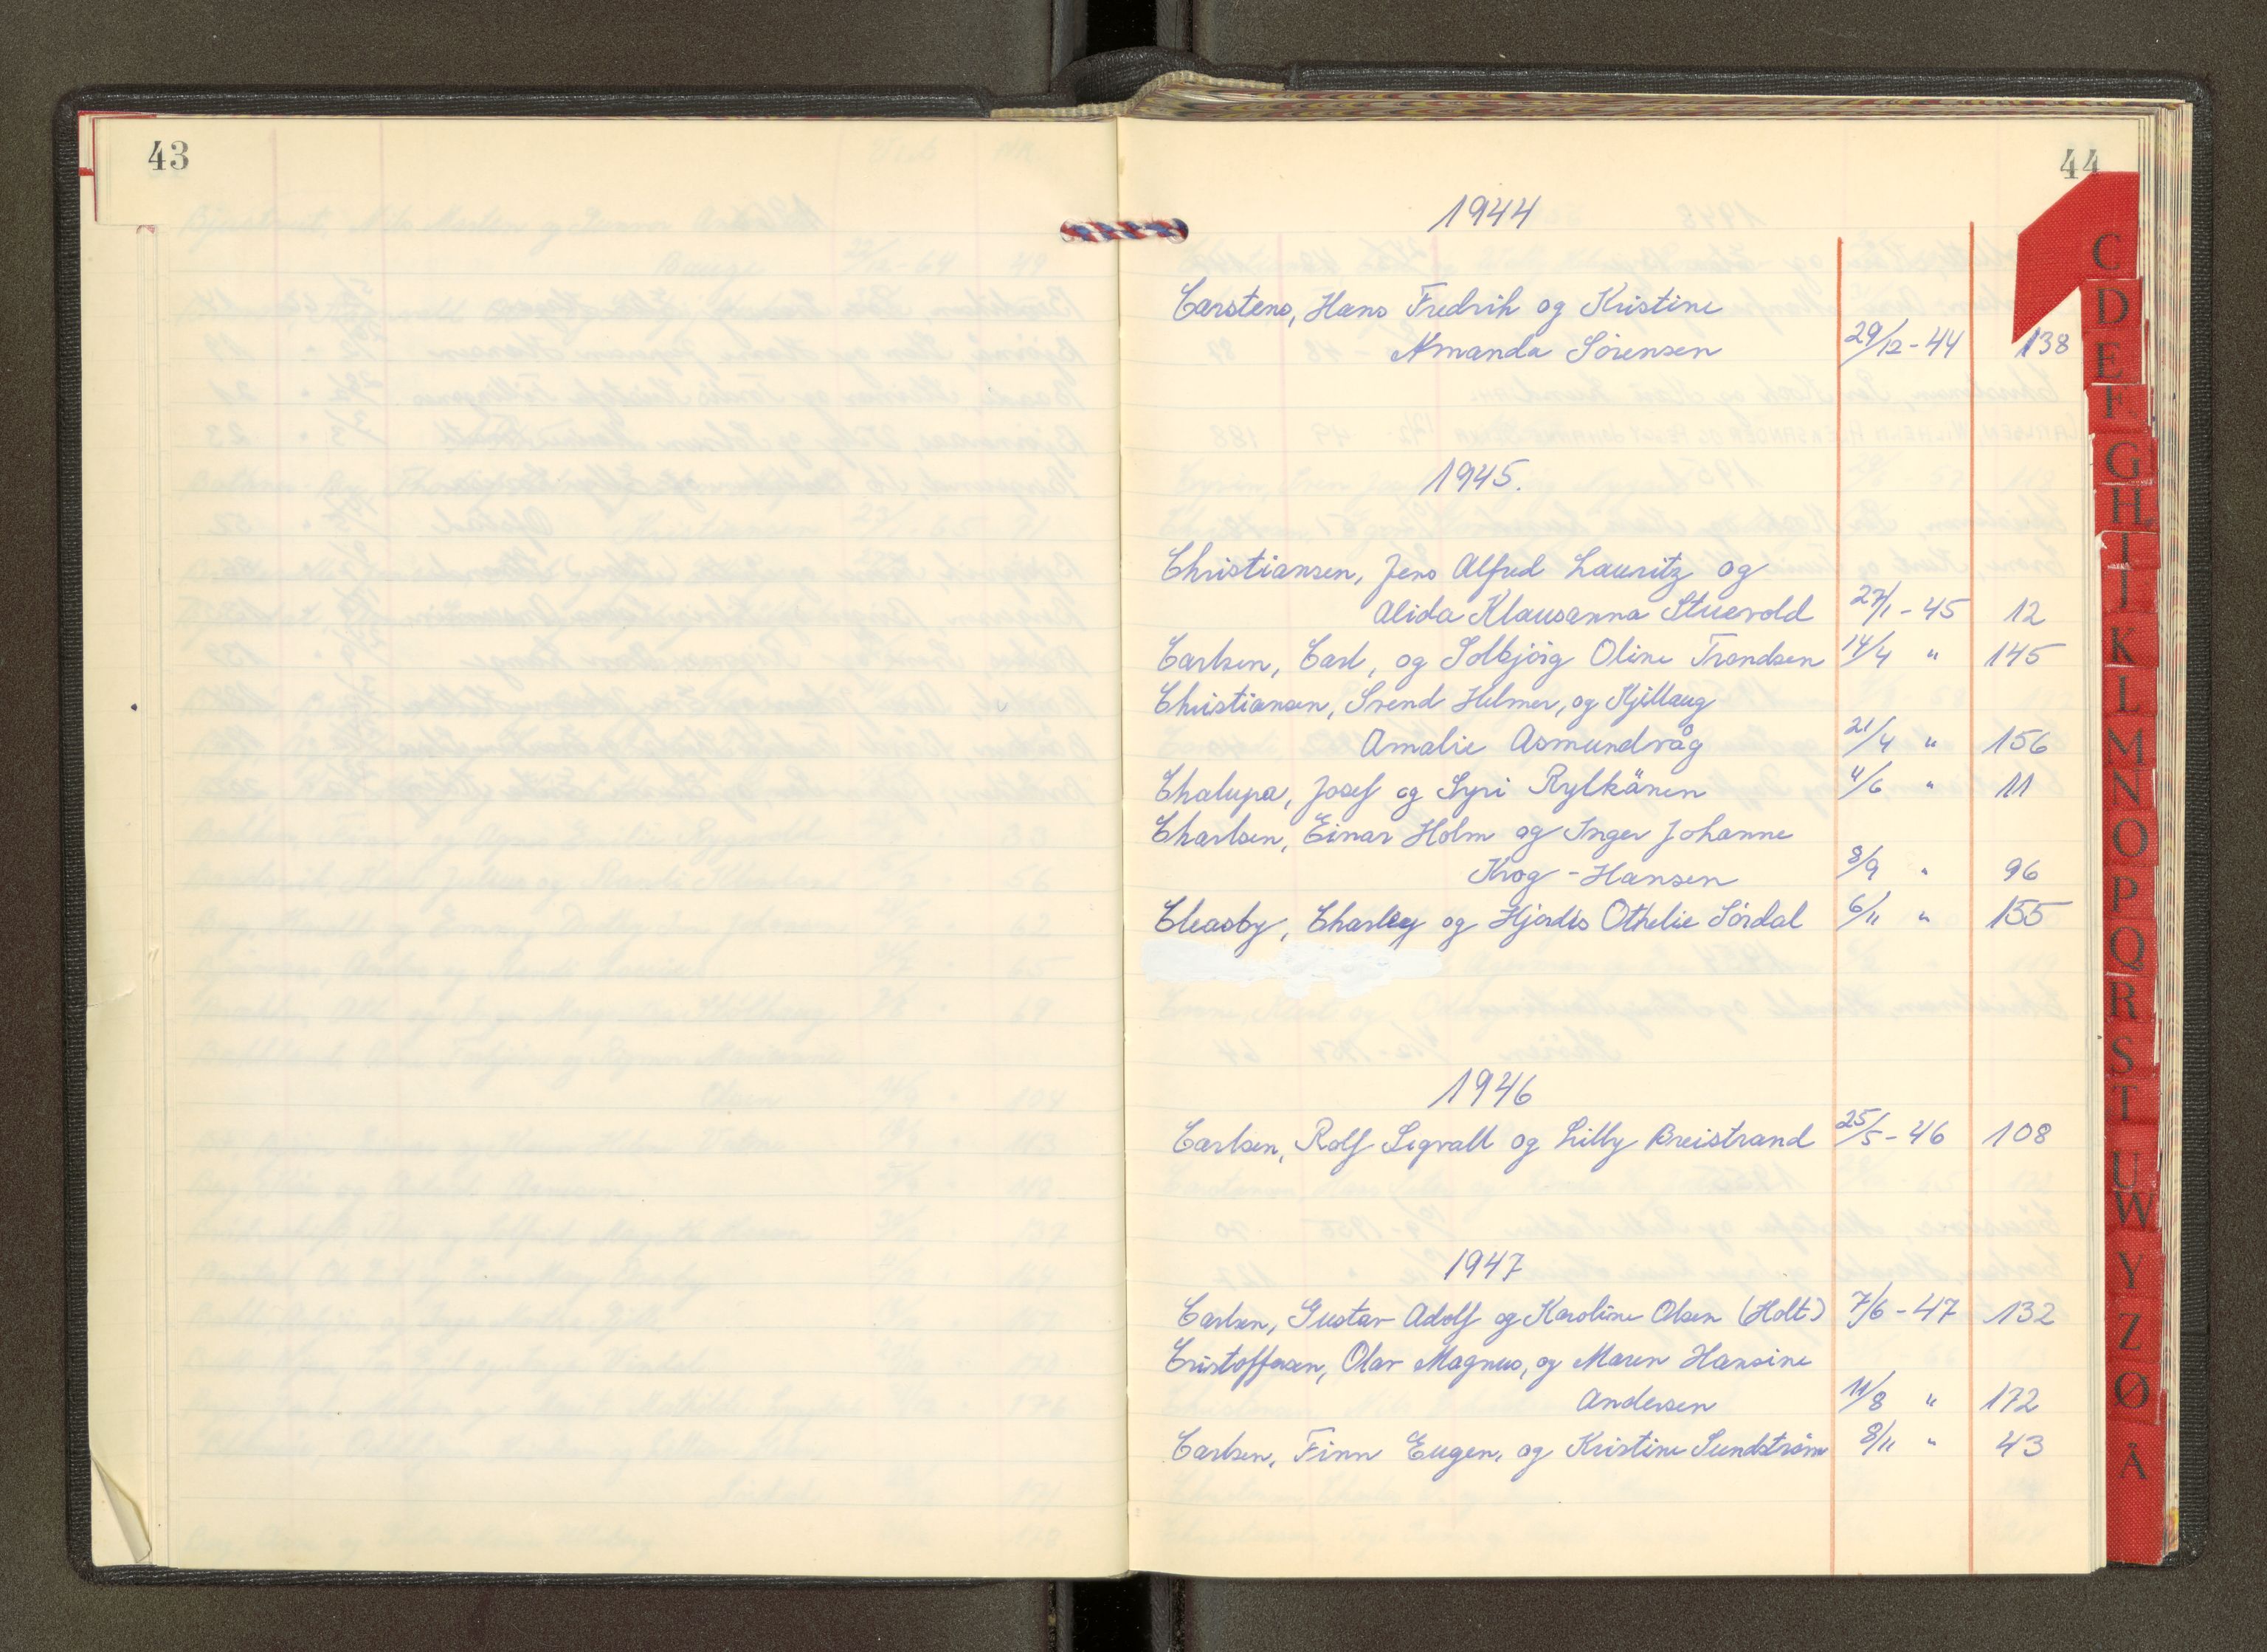 43
44
1944
Carstens, Hans Fredrik og Kristine
Amanda Sørensen 29/12-44 138
1945.
Christiansen, Jens Alfred Lauritz og
Alida Klausanna Stuevold 27/1-45 12
Carlsen, Carl, og Solbjörg Oline Trondsen 14/4 " 145
Christiansen, Svend Helmer, og Kjellaug
Amalie Asmundvåg 21/4 " 156
Chalupa, Josef og Syri Rylkänen 4/6 " 11
Charlsen, Einar Holm og Inger Johanne
Krog-Hansen 8/9 " 96
Cleasby, Charley og Hjördis Othelie Sördal 6/11 " 155
1946
Carlsen, Rolf Sigvall og Lilly Breistrand 25/5-46 108
1947
Carlsen, Gustav Adolf og Karoline Olsen (Holt) 7/6-47 132
Cristoffersen, Olav Magnus, og Maren Hansine
Andersen 11/8 " 172
Carlsen, Finn Eugen, og Kristine Sundström 8/11 " 43
C
D
E
F
G
H
I
J
K
L
M
N
O
P
Q
R
S
T
U
W
Y
Z
Ø
Å